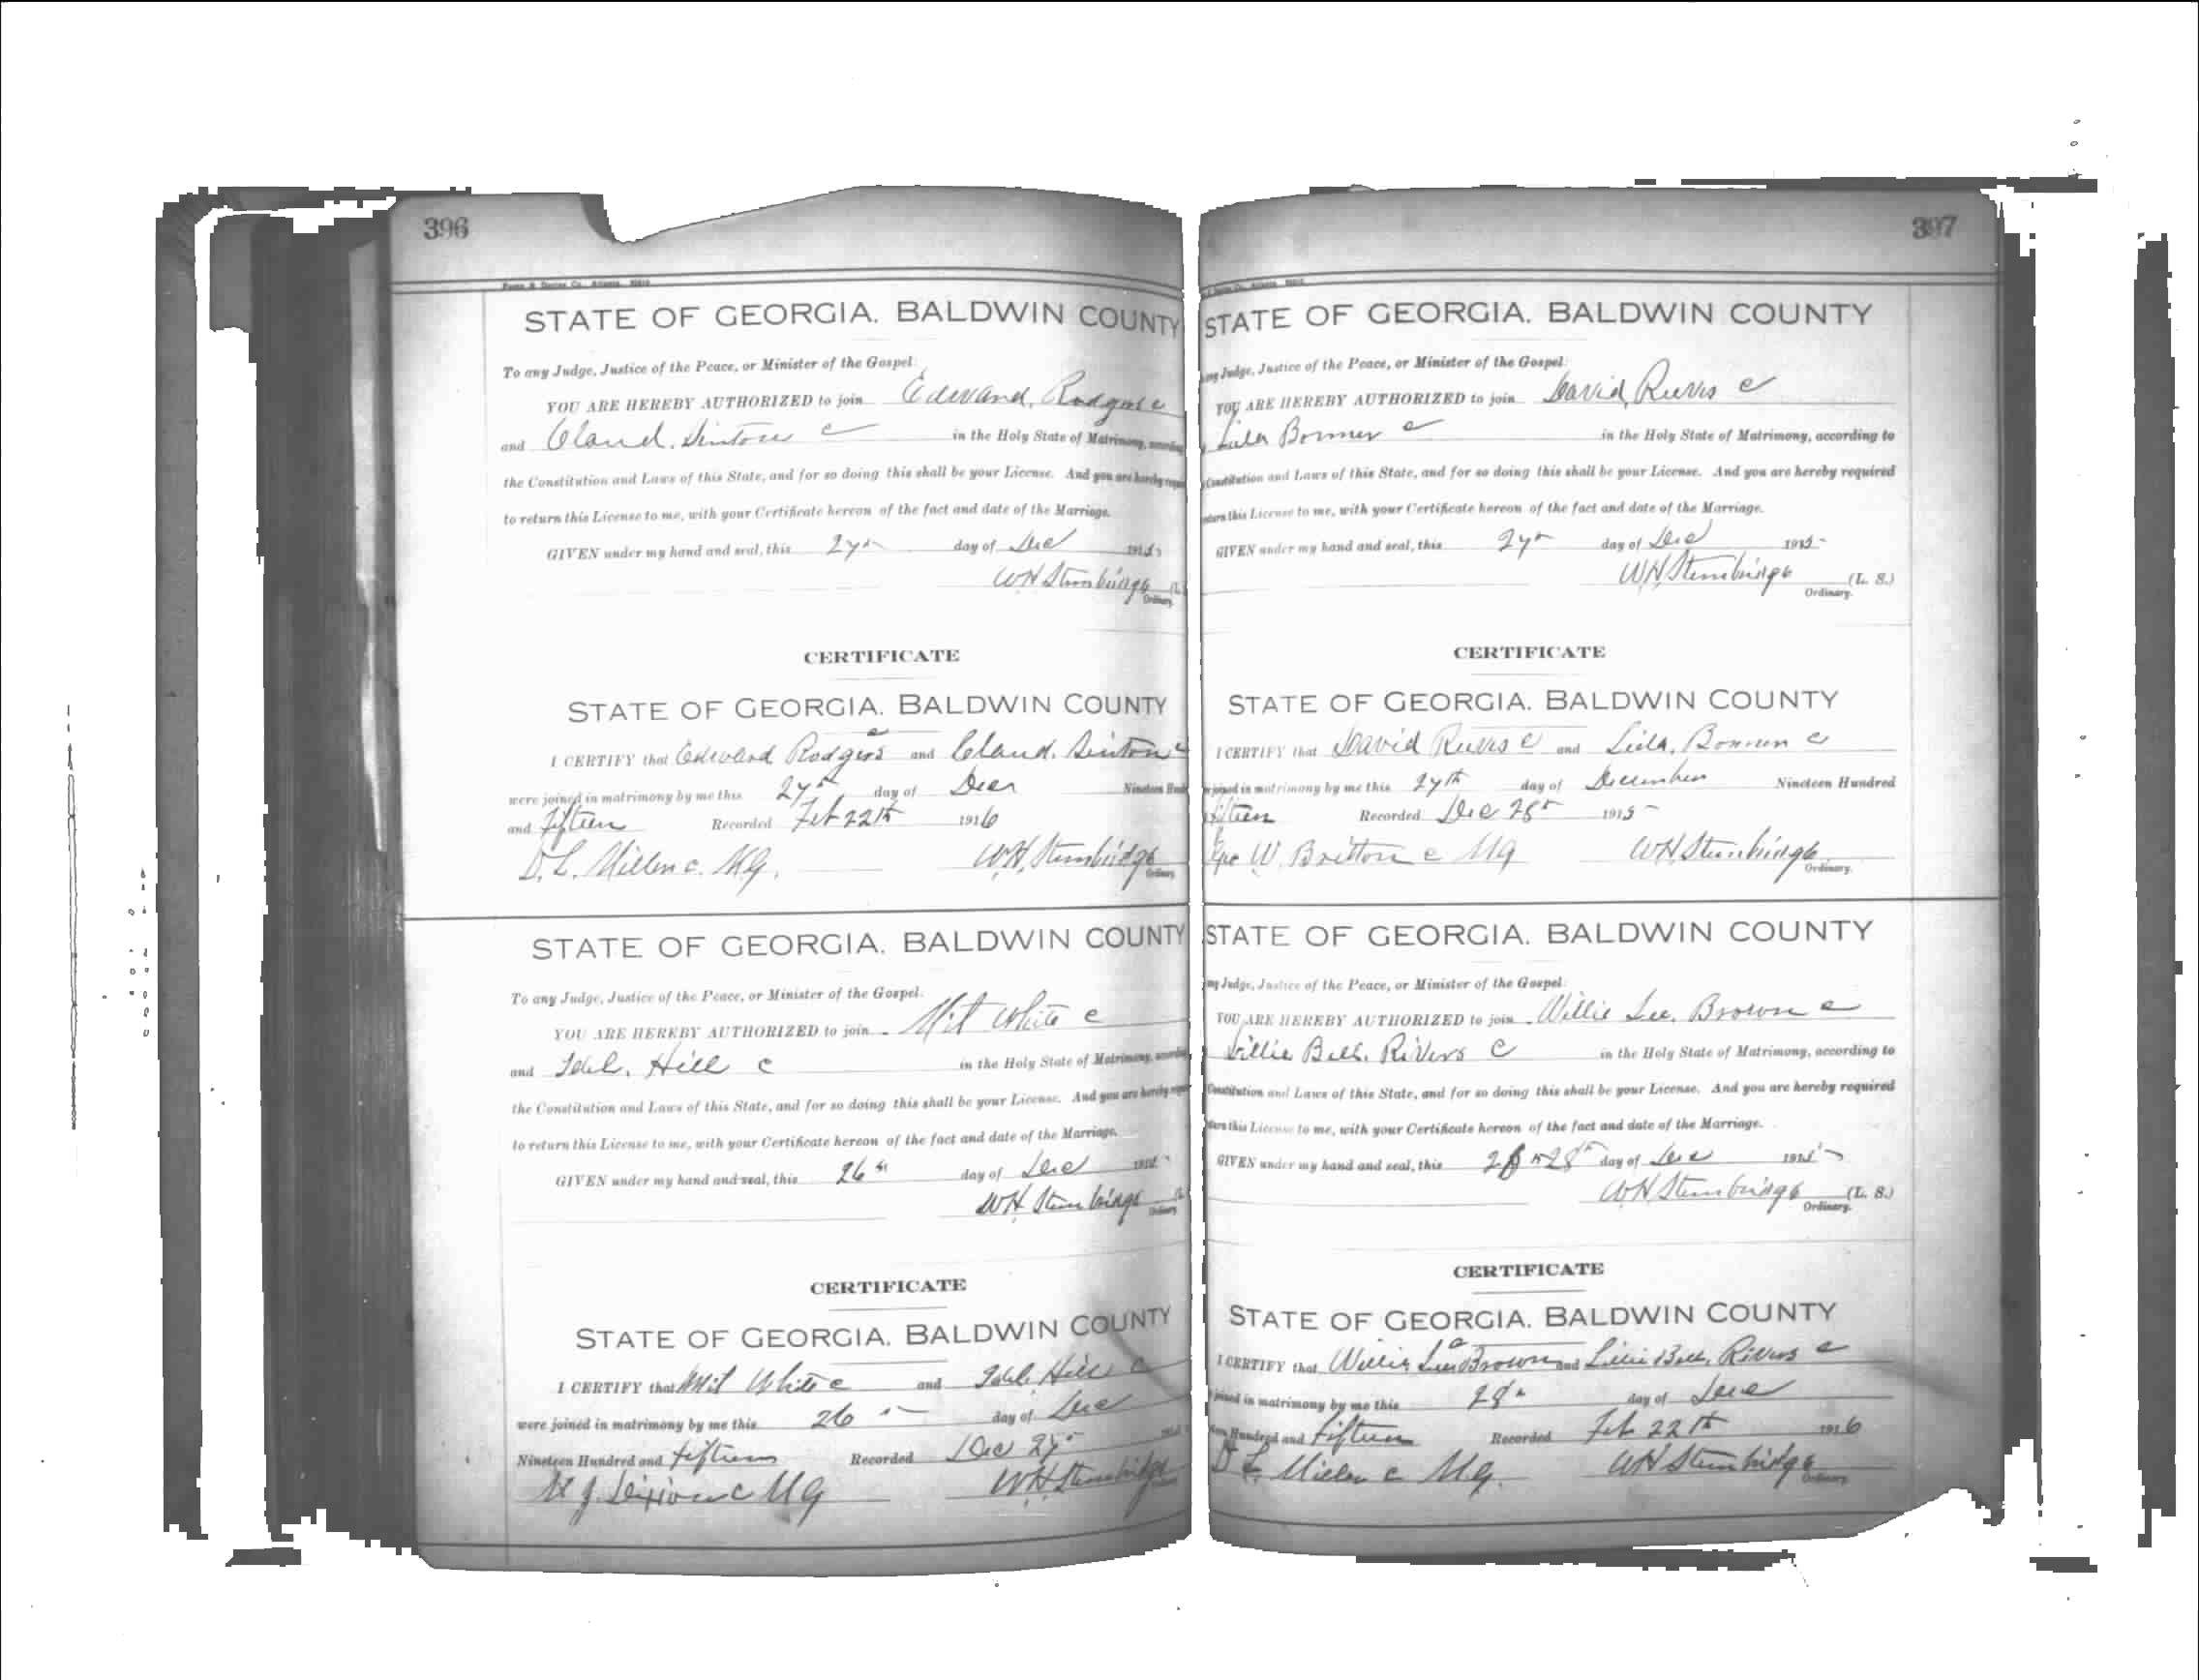 396
STATE OF GEORGIA. BALDWIN COUNTY
To any Judge, Justice of the Peace, or Minister of the Gospel:
YOU ARE HEREBY AUTHORIZED to join Edward, Rodgers c
and Claud. c in the Holy State of Matrimony,
the Constitution and Laws of this State, and for so doing this shall be your License. And you are hereby
to return this License to me, with your Certificate hereon of the fact and date of the Marriage.
GIVEN under my hand and seal, this 27th day of Dec 1915
W.H. Stembridge
Ordinary.
CERTIFICATE
STATE OF GEORGIA. BALDWIN COUNTY
c
I CERTIFY that Edward Rodgers and Claud. c
were joined in matrimony by me this 27th day of Decr Nineteen
and fifteen Recorded Feb 22th 1916
D. L. Miller c. M.G. W.H. Stembridge
Ordinary
STATE OF GEORGIA. BALDWIN COUNTY
To any Judge, Justice of the Peace, or Minister of the Gospel.
YOU ARE HEREBY AUTHORIZED to join Mit White c
and Hill c in the Holy State of Matrimony,
the Constitution and Laws of this State, and for so doing this shall be your License. And you are hereby
to return this License to me, with your Certificate hereon of the fact and date of the Marriage.
GIVEN under my hand and seal, this 26th day of Dec 1915
W.H. Stembridge
Ordinary
CERTIFICATE
STATE OF GEORGIA. BALDWIN COUNTY
I CERTIFY that Mit White c and Hill c
were joined in matrimony by me this 26 day of Dec
Nineteen Hundred and fifteen Recorded Dec 27th
M.G. W.H. Stembridge
397
STATE OF GEORGIA. BALDWIN COUNTY
Judge, Justice of the Peace, or Minister of the Gospel:
YOU ARE HEREBY AUTHORIZED to join David, Reeves c
Lula Bonner c in the Holy State of Matrimony, according to
Constitution and Laws of this State, and for so doing this shall be your License. And you are hereby required
this License to me, with your Certificate hereon of the fact and date of the Marriage.
GIVEN under my hand and seal, this 27th day of Dec 1915
W.H. Stembridge (L. S.)
Ordinary.
CERTIFICATE
STATE OF GEORGIA. BALDWIN COUNTY
I CERTIFY that David Reeves c and Lula, Bonner c
joined in matrimony by me this 27th day of December Nineteen Hundred
fifteen Recorded Dec 28th 1915
W. Britton c MG W.H. Stembridge
Ordinary.
STATE OF GEORGIA. BALDWIN COUNTY
Judge, Justice of the Peace, or Minister of the Gospel:
YOU ARE HEREBY AUTHORIZED to join Willie Lee. Brown c
Lillie Bell. Rivers c in the Holy State of Matrimony, according to
Constitution and Laws of this State, and for so doing this shall be your License. And you are hereby required
this License to me, with your Certificate hereon of the fact and date of the Marriage.
GIVEN under my hand and seal, this 28th day of Dec 1915
W.H. Stembridge (L. S.)
Ordinary.
CERTIFICATE
STATE OF GEORGIA. BALDWIN COUNTY
c
I CERTIFY that Willie Lee Brown and Lillie Bell. Rivers c
joined in matrimony by me this 28th day of Dec
Hundred and fifteen Recorded Feb 22th 1916
D L. Miller c M.G. W.H. Stembridge
Ordinary